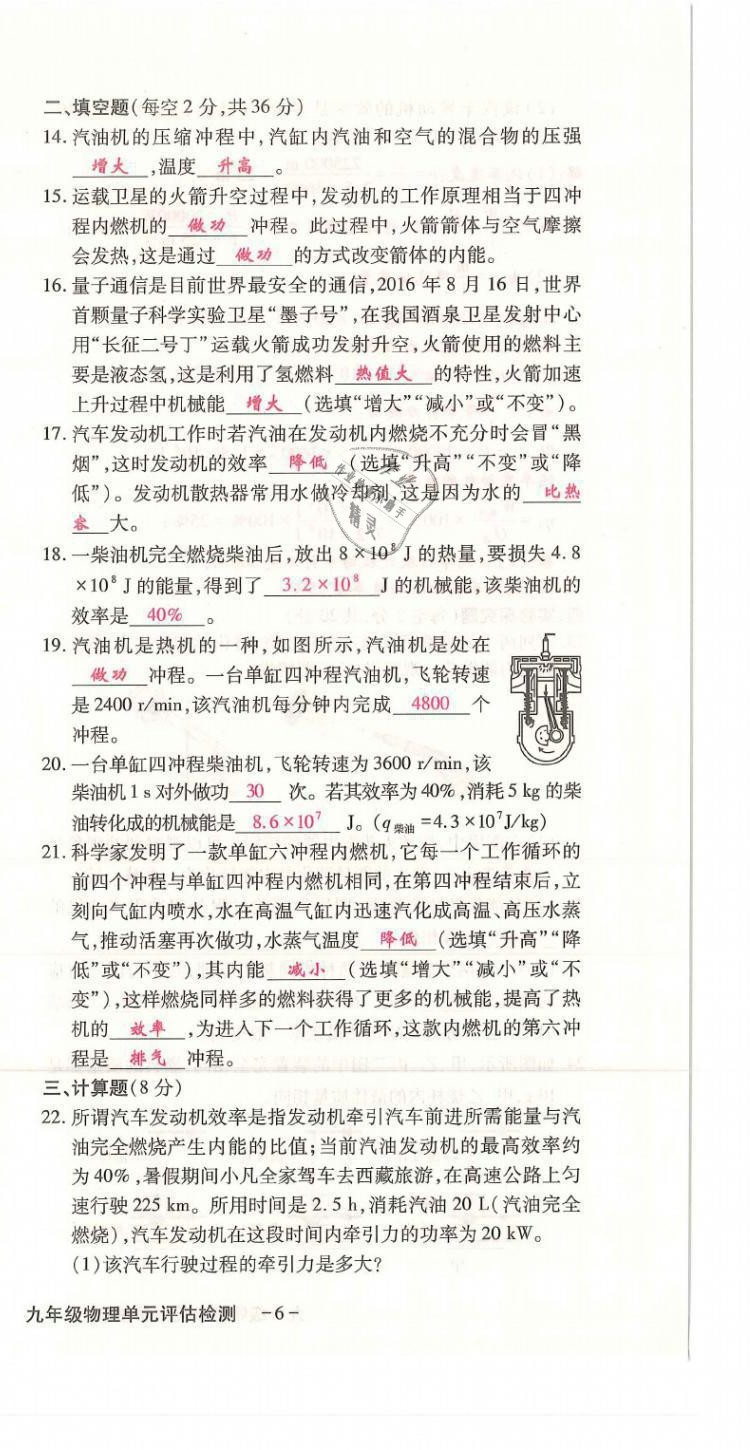 二、填空题(每空2分,共36分)
14. 汽油机的压缩冲程中,汽缸内汽油和空气的混合物的压强
增大,温度 升高 。
15. 运载卫星的火箭升空过程中,发动机的工作原理相当于四冲
程内燃机的 做功 冲程。此过程中,火箭箭体与空气摩擦
会发热,这是通过 做功 的方式改变箭体的内能。
16. 量子通信是目前世界最安全的通信,2016年8月16日,世界
首颗量子科学实验卫星“墨子号”,在我国酒泉卫星发射中心
用“长征二号丁”运载火箭成功发射升空,火箭使用的燃料主
要是液态氢,这是利用了氢燃料 热值大 的特性,火箭加速
上升过程中机械能 增大 (选填“增大”“减小”或“不变”)。
17. 汽车发动机工作时若汽油在发动机内燃烧不充分时会冒“黑
烟”,这时发动机的效率 降低 (选填“升高”“不变”或“降
低”)。发动机散热器常用水做冷却剂,这是因为水的 比热
容 大。
18. 一柴油机完全燃烧柴油后,放出8×10⁸ J的热量,要损失4.8
×10⁸ J的能量,得到了 3.2×10⁸ J的机械能,该柴油机的
效率是 40% 。
19. 汽油机是热机的一种,如图所示,汽油机是处在
做功 冲程。一台单缸四冲程汽油机,飞轮转速
是2400 r/min,该汽油机每分钟内完成 4800 个
冲程。
20. 一台单缸四冲程柴油机,飞轮转速为3600 r/min,该
柴油机1 s对外做功 30 次。若其效率为40%,消耗5 kg的柴
油转化成的机械能是 8.6×10⁷ J。(q柴油=4.3×10⁷J/kg)
21. 科学家发明了一款单缸六冲程内燃机,它每一个工作循环的
前四个冲程与单缸四冲程内燃机相同,在第四冲程结束后,立
刻向气缸内喷水,水在高温气缸内迅速汽化成高温、高压水蒸
气,推动活塞再次做功,水蒸气温度 降低 (选填“升高”“降
低”或“不变”),其内能 减小 (选填“增大”“减小”或“不
变”),这样燃烧同样多的燃料获得了更多的机械能,提高了热
机的 效率 ,为进入下一个工作循环,这款内燃机的第六冲
程是 排气 冲程。
三、计算题(8分)
22. 所谓汽车发动机效率是指发动机牵引汽车前进所需能量与汽
油完全燃烧产生内能的比值;当前汽油发动机的最高效率约
为40%,暑假期间小凡全家驾车去西藏旅游,在高速公路上匀
速行驶225 km。所用时间是2.5 h,消耗汽油20 L(汽油完全
燃烧),汽车发动机在这段时间内牵引力的功率为20 kW。
(1)该汽车行驶过程的牵引力是多大?
九年级物理单元评估检测 -6-